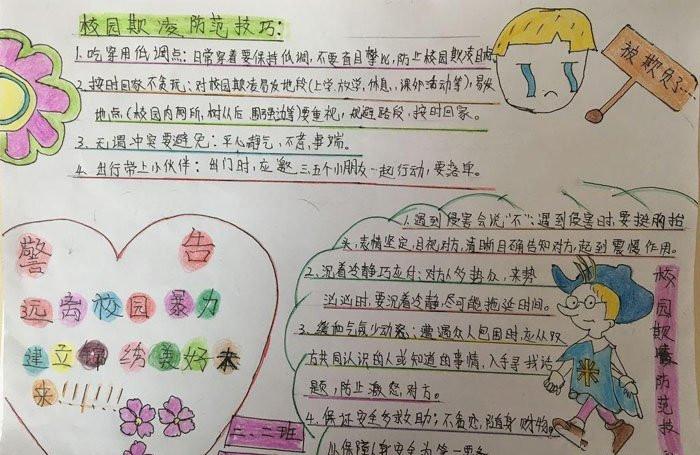 校园欺凌防范技巧:
1.吃穿用低调点:日常穿着要保持低调,不要盲目攀比,防止校园欺凌
2.按时回家不贪玩:对校园欺凌易发地段(上学,放学,休息,课外活动等),易发
地点(校园内厕所,树从后 围强边等)要重视,规避路段,按时回家。
3.无谓冲突要避免:平心静气,不惹事端。
4.出行带上小伙伴:出门时,应邀三五个小朋友一起行动,要落单。
被欺负了…
1.遇到侵害会说"不":遇到侵害时,要挺胸抬
头,表情坚定,目视对方,清晰明确告知对方,起到震慑作用。
2.沉着冷静巧应付:对方人多势众,来势
汹汹时,要沉着冷静,尽可能拖延时间。
3.缓和气氛少动怒:遭遇众人包围时,应从双
方共同认识的人或知道的事情,入手寻找话
题,防止激怒对方。
4.保证安全多求助:不贪恋随身财物。
以保障人身安全为第一要务
警告
远离校园暴力
建立
练美好未
来!!!!!!
三.二班
校园欺凌防范技